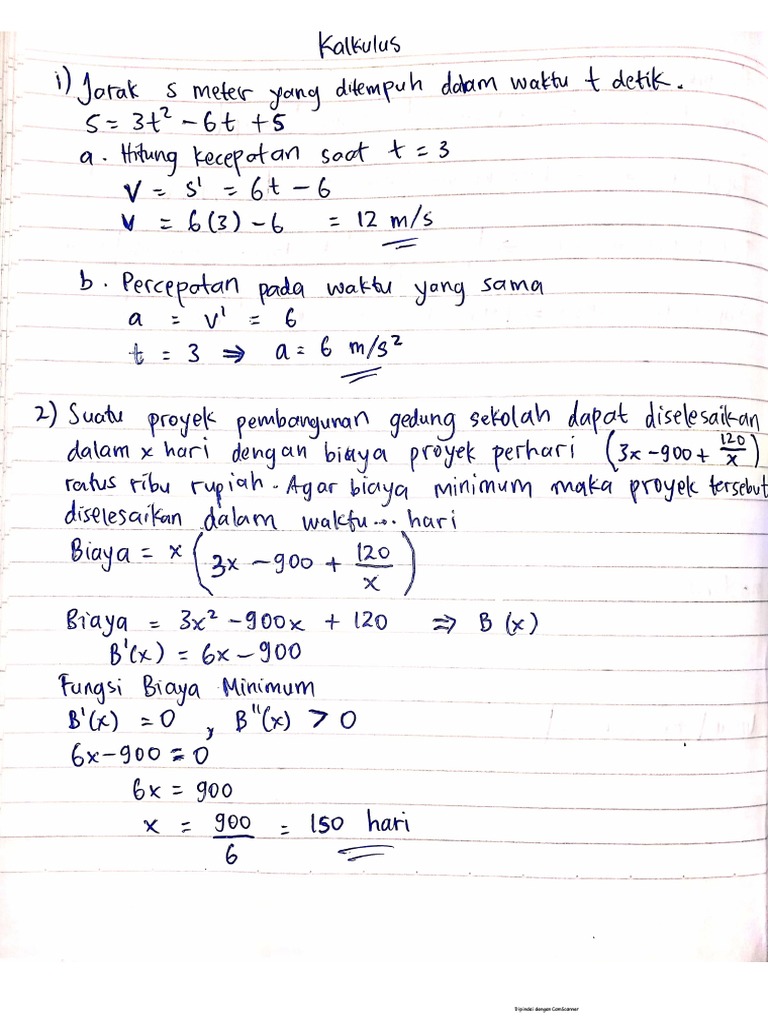 Kalkulus
1) Jarak s meter yang ditempuh dalam waktu t detik.
S = 3t² - 6t + 5
a. Hitung kecepatan saat t = 3
V = s' = 6t - 6
v = 6(3) - 6 = 12 m/s
b. Percepatan pada waktu yang sama
a = v' = 6
t = 3 ⇒ a = 6 m/s²
2) Suatu proyek pembangunan gedung sekolah dapat diselesaikan
dalam x hari dengan biaya proyek perhari (3x - 900 + 120/x)
ratus ribu rupiah. Agar biaya minimum maka proyek tersebut
diselesaikan dalam waktu... hari
Biaya = x (3x - 900 + 120/x)
Biaya = 3x² - 900x + 120 ⇒ B (x)
B'(x) = 6x - 900
Fungsi Biaya Minimum
B'(x) = 0 , B''(x) > 0
6x - 900 = 0
6x = 900
x = 900/6 = 150 hari
Dipindai dengan CamScanner